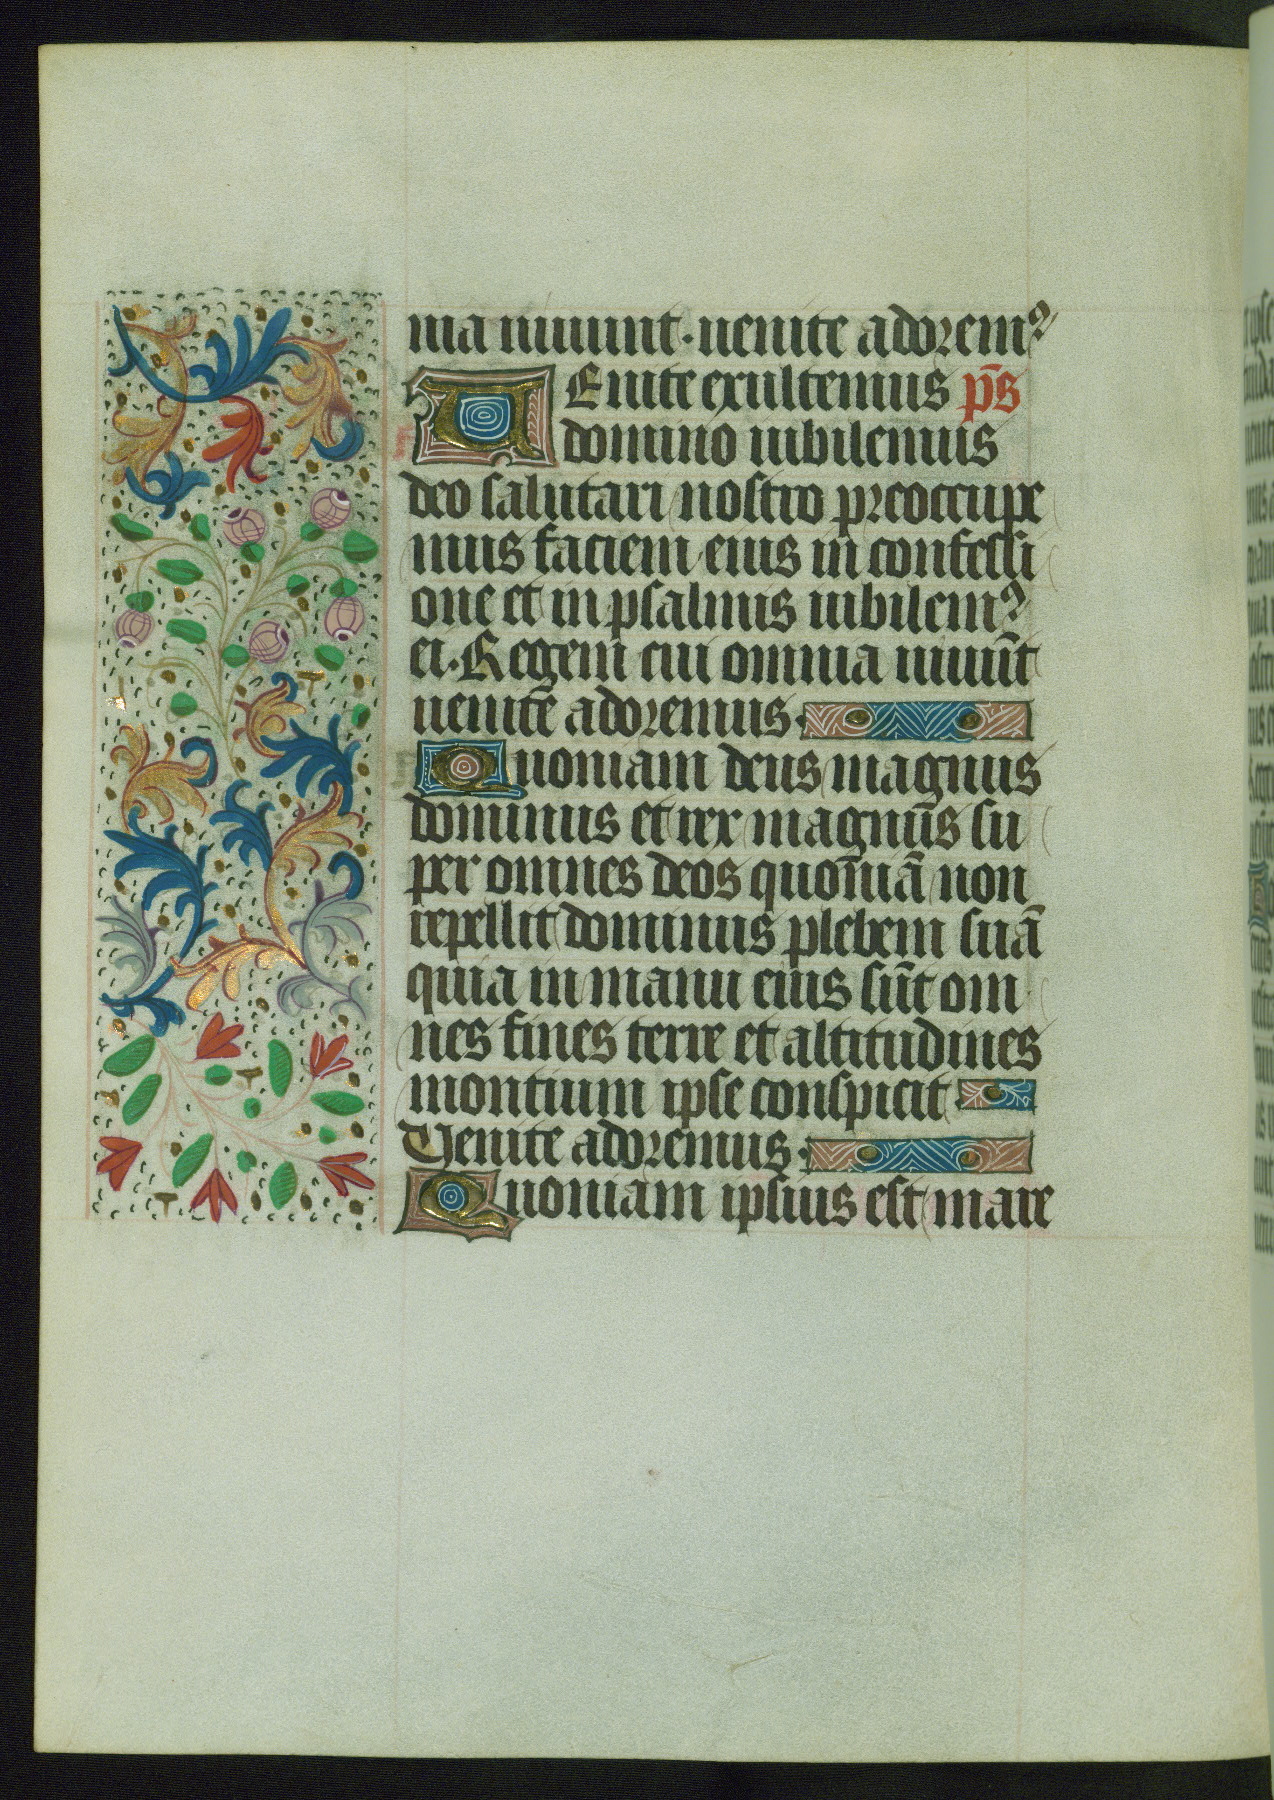 nia uiuunt · uenite adorem⁹
UEnite exultemus p̄s
domino iubilemus
deo salutari nostro preoccupe
mus faciem eius in confessi
one et in psalmis iubilem⁹
ei · Regem cui omnia uiuūt
uenite adoremus ·
Quoniam deus magnus
dominus et rex magnus su
per omnes deos quoniā non
repellit dominus plebem suā
quia in manu eius sūt om
nes fines terre et altitudines
montium ipse conspicit
Uenite adoremus ·
Quoniam ipsius est mare